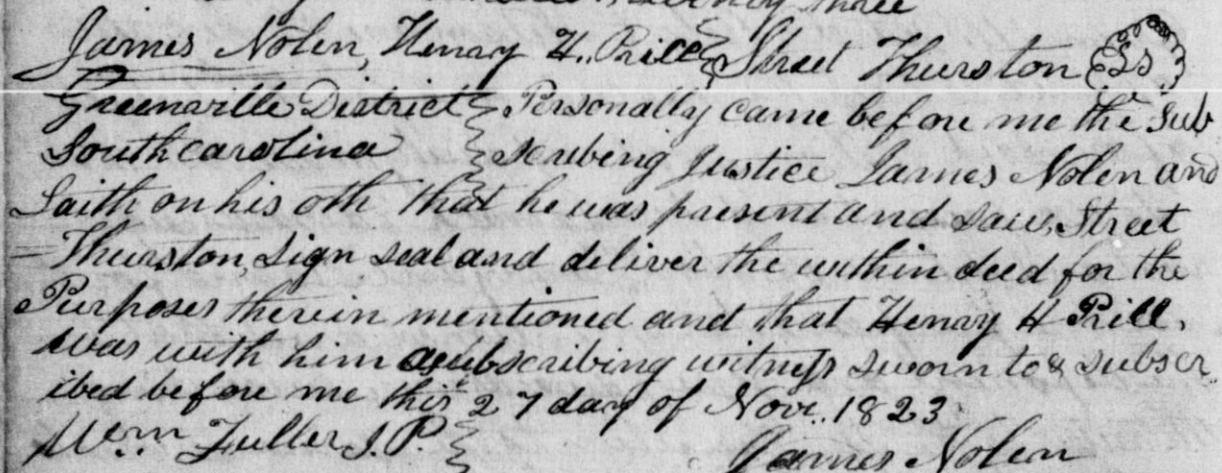 Seventy three
James Nolen, Henry H. Prill Street Thurston LS
Greenville District Personally came before me the Sub
South carolina scribing Justice James Nolen and
Saith on his oth that he was present and saw, Street
Thurston, Sign seal and deliver the within deed for the
Purposes therein mentioned and that Henry H Prill.
was with him a subscribing witness sworn to & subscr
ibed before me this 27 day of Nov. 1823
Wm Fuller J.P. James Nolen